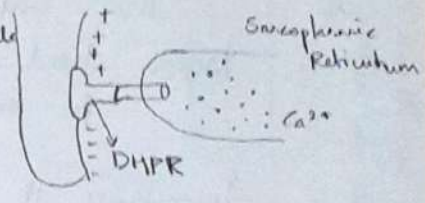 Sarcoplasmic
Reticulum
Ca²⁺
DHPR